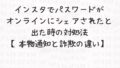 インスタでパスワードが
オンラインにシェアされたと
出た時の対処法
【本物通知と詐欺の違い】